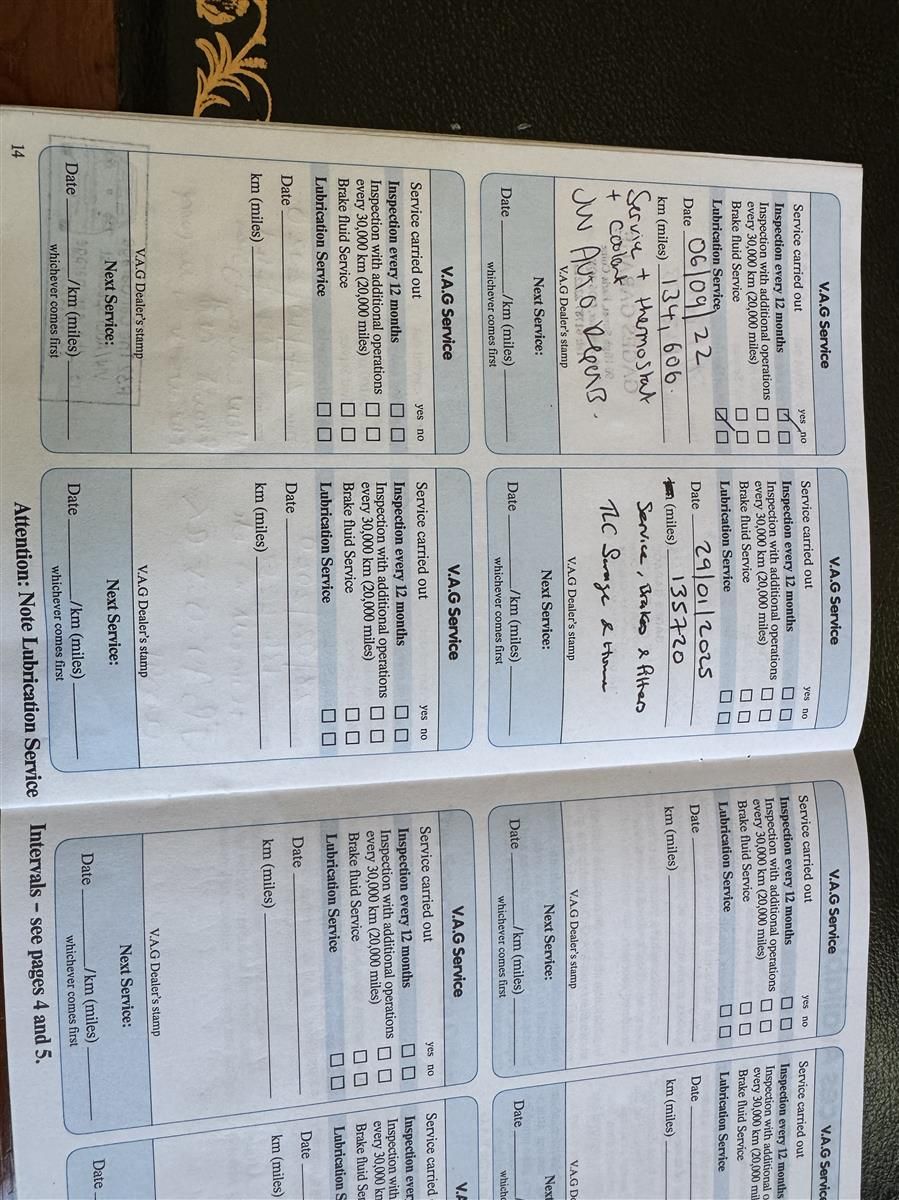 V.A.G Service
Service carried out yes no
Inspection every 12 months
Inspection with additional operations
every 30,000 km (20,000 miles)
Brake fluid Service
Lubrication Service
Date 06/09/22
km (miles) 134,606.
Service + thermostat
+ coolant
V.A.G Dealer's stamp
Next Service:
Date /km (miles)
whichever comes first
V.A.G Service
Service carried out yes no
Inspection every 12 months
Inspection with additional operations
every 30,000 km (20,000 miles)
Brake fluid Service
Lubrication Service
Date 29/01/2025
(miles) 135720
Service, Brakes & filters
V.A.G Dealer's stamp
Next Service:
Date /km (miles)
whichever comes first
V.A.G Service
Service carried out yes no
Inspection every 12 months
Inspection with additional operations
every 30,000 km (20,000 miles)
Brake fluid Service
Lubrication Service
Date
km (miles)
V.A.G Dealer's stamp
Next Service:
Date /km (miles)
whichever comes first
V.A.G Service
Service carried out
Inspection every 12 months
Inspection with additional o
every 30,000 km (20,000 mil
Brake fluid Service
Lubrication Service
Date
km (miles)
V.A.G De
Next
Date
whichc
V.A.G Service
Service carried out yes no
Inspection every 12 months
Inspection with additional operations
every 30,000 km (20,000 miles)
Brake fluid Service
Lubrication Service
Date
km (miles)
V.A.G Dealer's stamp
Next Service:
Date /km (miles)
whichever comes first
V.A.G Service
Service carried out yes no
Inspection every 12 months
Inspection with additional operations
every 30,000 km (20,000 miles)
Brake fluid Service
Lubrication Service
Date
km (miles)
V.A.G Dealer's stamp
Next Service:
Date /km (miles)
whichever comes first
V.A.G Service
Service carried out yes no
Inspection every 12 months
Inspection with additional operations
every 30,000 km (20,000 miles)
Brake fluid Service
Lubrication Service
Date
km (miles)
V.A.G Dealer's stamp
Next Service:
Date /km (miles)
whichever comes first
V.A
Service carried
Inspection ever
Inspection with
every 30,000 km
Brake fluid Ser
Lubrication S
Date
km (miles)
Date
14
Attention: Note Lubrication Service Intervals – see pages 4 and 5.